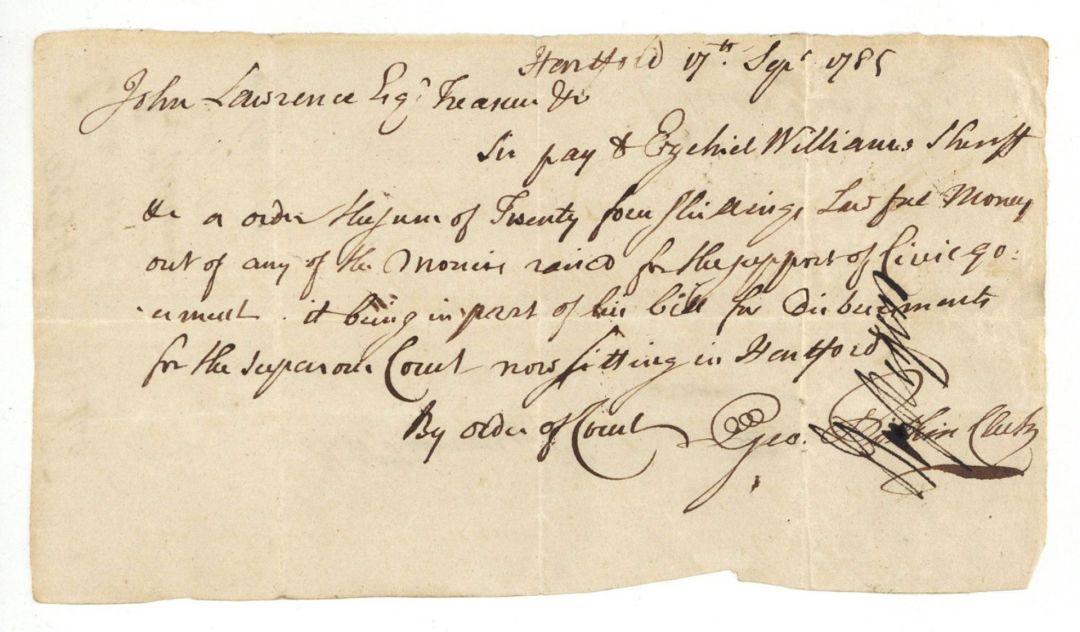 Hartford 17th. Sepr. 1785
John Lawrence Esqr. Treasurer &c
Sir pay to Ezekiel Williams Sheriff
&c or order the sum of Twenty four shillings Lawful Money
out of any of the Monies raised for the support of Civil go:
ernment. it being in part of his bill for Disbursments
for the superiour Court now sitting in Hartford
By order of Court Geo. Pitkin Clerk